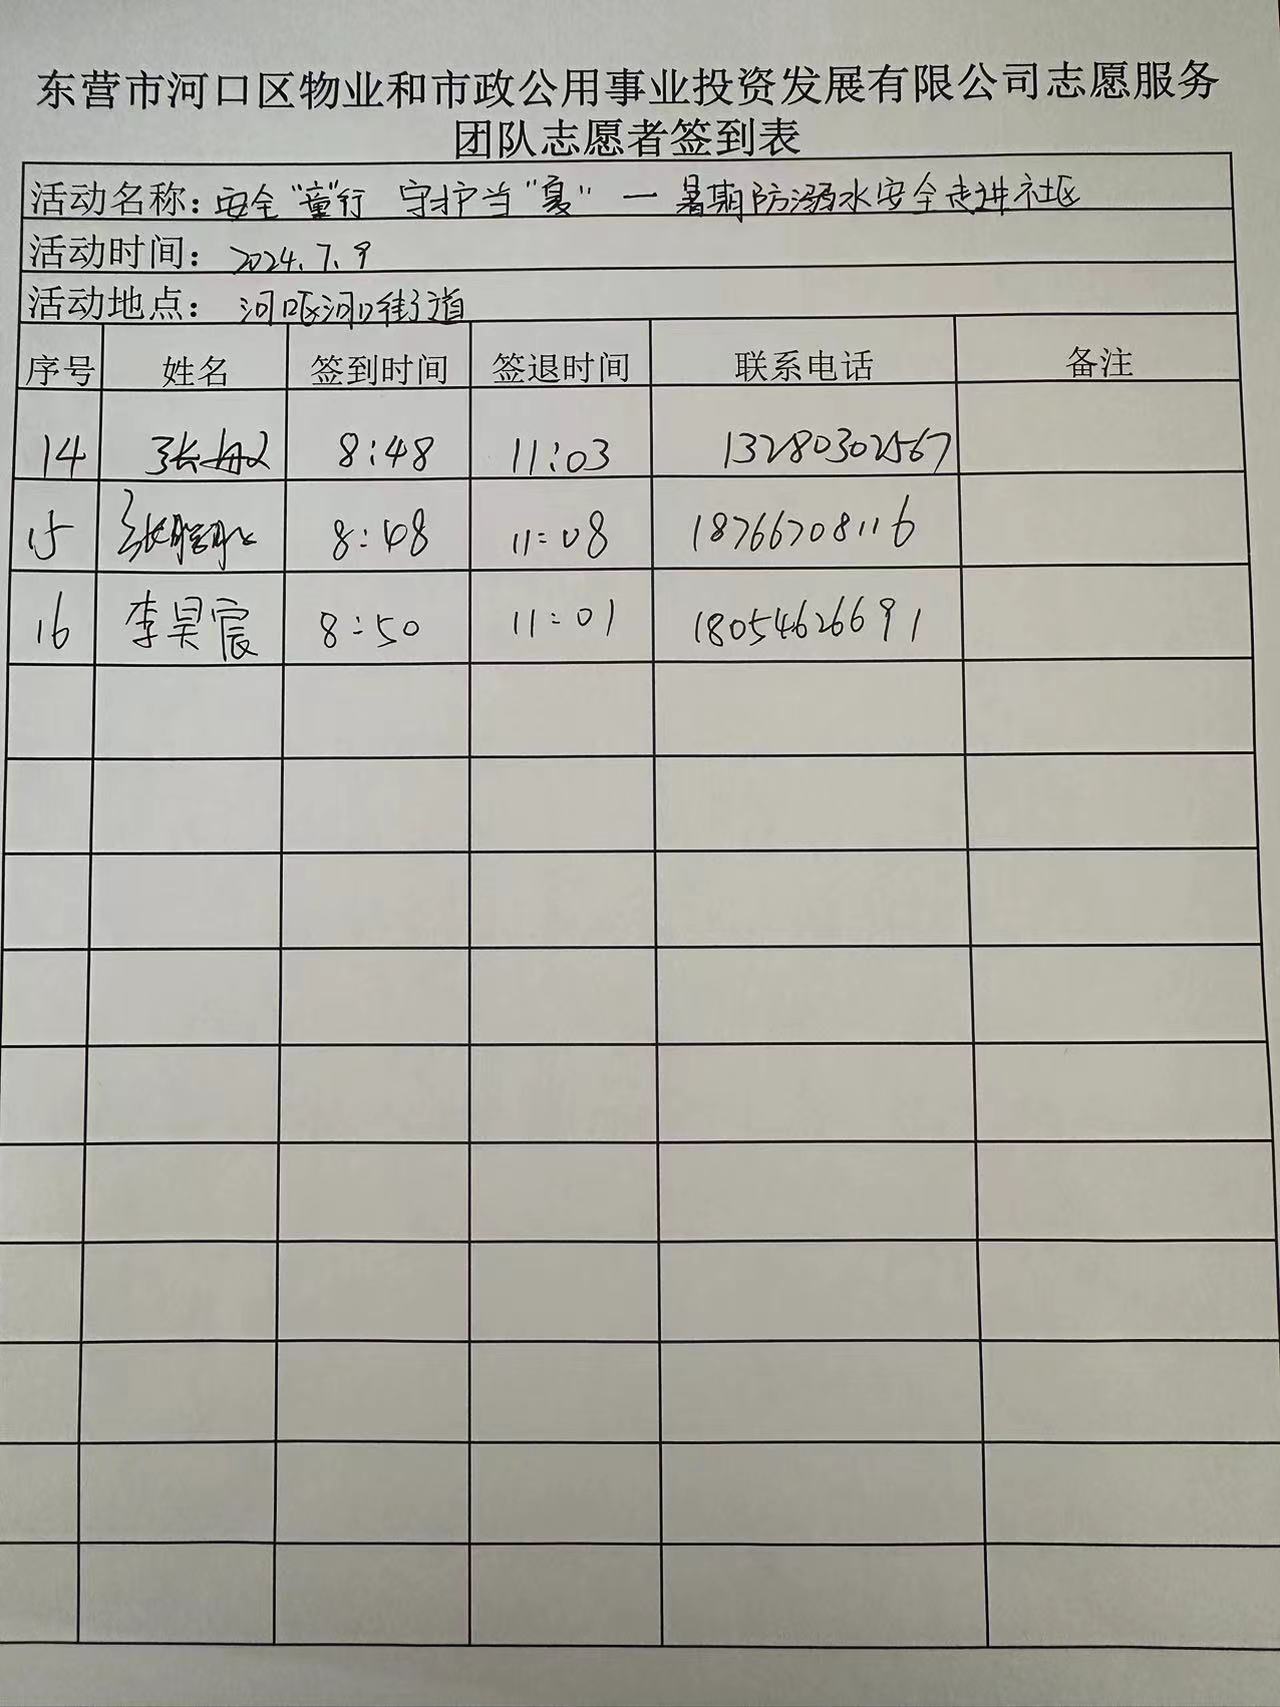 东营市河口区物业和市政公用事业投资发展有限公司志愿服务
团队志愿者签到表
活动名称：安全“童”行 守护当“夏” — 暑期防溺水安全走进社区
活动时间： 2024.7.9
活动地点： 河口区河口街道
序号 姓名 签到时间 签退时间 联系电话 备注
14 张敏 8:48 11:03 13280302567
15 张 8:48 11:08 18766708116
16 李昊宸 8:50 11:01 18054626691